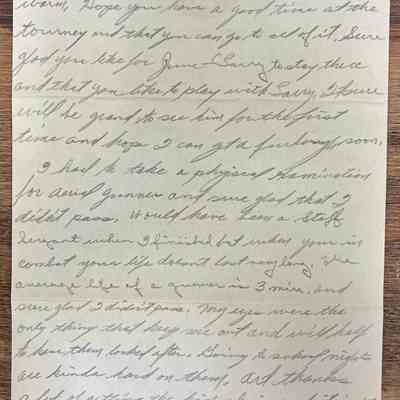 warm, Hope you have a good time at the
tourney and that you can go to all of it. Sure
glad you like for June & Larry to stay there
and that you like to play with Larry, I know
will be grand to see him for the first
time and hope I can get a furlough soon.
I had to take a physical examination
for aerial gunner and sure glad that I
didn't pass. Would have been a Staff
Sergent when I finished but when your in
combat your life doesn't last very long. The
average life of a gunner is 3 min. and
sure glad I didn't pass. My eyes were the
only thing that keep me out and will half
to have them looked after. Going to school nights
are kinda hard on them, Art thanks
a lot of